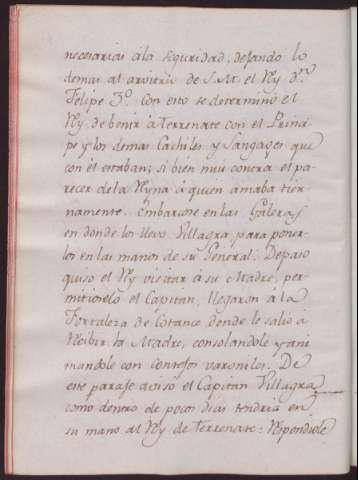 necesarias á la seguridad, dejando lo
demas al arvitrio de S. M. el Rey dⁿ.
Felipe 3º. con esto se determinó el
Rey de benir á Terrenate con el Princi-
pe y los demas Cachiles y Sangages que
con él estaban; si bien mui contra el pa-
recer de la Reyna á quien amaba tier-
namente. Embarcose en las Galeras
en donde los llevó Villagra para poner-
los en las manos de su General: De paso
quiso el Rey visitar á su Madre, per-
mitioselo el Capitan, llegaron á la
Fortaleza de Cotance donde le salió á
Recibir la Madre, consolandole y ani-
mandole con consejos varoniles. De
este paraje avisó el Capitan Villagra
como dentro de pocos dias tendria en
su mano al Rey de Terrenate: Respondiole